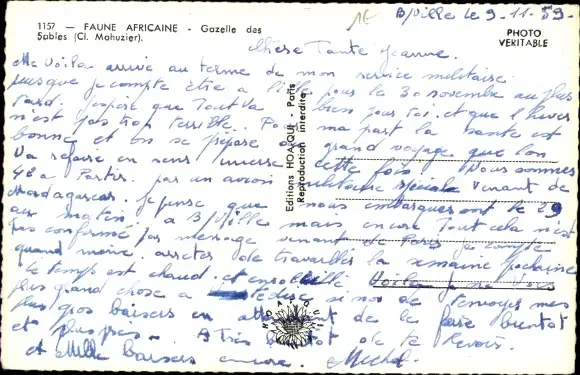 1157 — FAUNE AFRICAINE - Gazelle des
Sables (Cl. Mahuzier).
PHOTO
VERITABLE
B/Ville le 9-11-59-
Chère Tante Jeanne.
Me Voila arrivé au terme de mon service militaire
puisque je compte être à pour le 30 novembre au plus
tard. J'espère que Tout Va bien pour toi et que l'hiver
n'est pas trop terrible. Pour ma part la santé est
bonne et on se prépare au grand voyage que l'on
Va refaire en sens inverse cette fois. Nous sommes
48 a Partir par un avion militaire spéciale Venant de
Madagascar. je pense que nous embarqueront le 29
au matin a B/Ville mais encore Tout cela n'est
pas confirmé par message venant de Paris je compte
quand même arreter de travailler la semaine prochaine
Le temps est chaud et ensoleillé Voila je ne vois
plus grand chose a te dire si non de t'envoyer mes
plus gros baisers en attendant de le faire bientot
et plus près. A Très bientot de te Revoir.
et Mille baisers encore. Michel
Editions HOA-QUI - Paris
Reproduction interdite